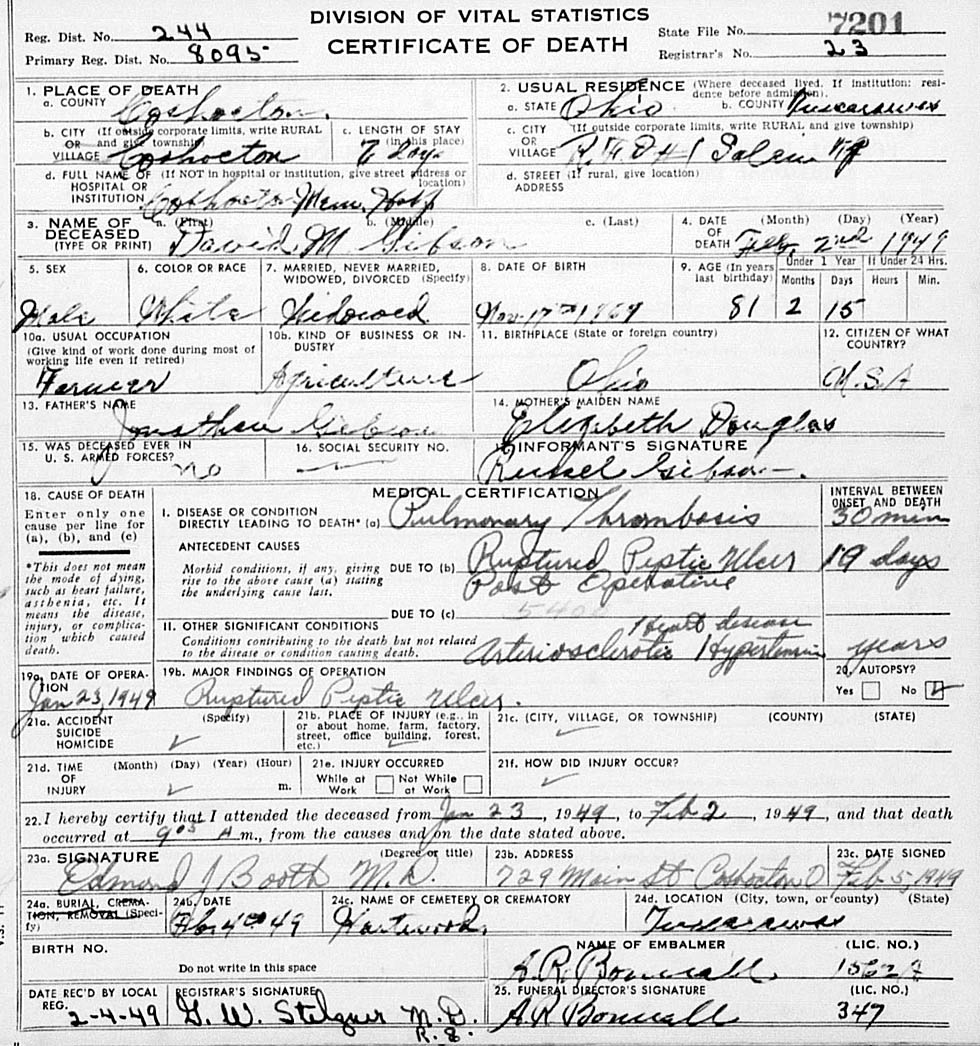 DIVISION OF VITAL STATISTICS
CERTIFICATE OF DEATH
Reg. Dist. No. 244
Primary Reg. Dist. No. 8095
State File No. 7201
Registrar's No. 23
1. PLACE OF DEATH
a. COUNTY Coshocton.
b. CITY (If outside corporate limits, write RURAL
OR and give township)
VILLAGE Coshocton
c. LENGTH OF STAY
(in this place)
Days
d. FULL NAME OF (If NOT in hospital or institution, give street address or
HOSPITAL OR location)
INSTITUTION Coshocton Mem. Hosp.
2. USUAL RESIDENCE (Where deceased lived. If institution: resi-
dence before admission).
a. STATE Ohio b. COUNTY Tuscarawas
c. CITY (If outside corporate limits, write RURAL and give township)
OR
VILLAGE R.F.D #1 Salem
d. STREET (If rural, give location)
ADDRESS
3. NAME OF a. (First) b. (Middle) c. (Last)
DECEASED
(TYPE OR PRINT) David M Gibson
4. DATE (Month) (Day) (Year)
OF
DEATH Feb. 2nd 1949
5. SEX
Male
6. COLOR OR RACE
White
7. MARRIED, NEVER MARRIED,
WIDOWED, DIVORCED (Specify)
Widowed
8. DATE OF BIRTH
Nov. 17th 1867
9. AGE (In years
last birthday)
81
Under 1 Year
Months Days
2 15
If Under 24 Hrs.
Hours Min.
10a. USUAL OCCUPATION
(Give kind of work done during most of
working life even if retired)
Farmer
10b. KIND OF BUSINESS OR IN-
DUSTRY
Agriculture
11. BIRTHPLACE (State or foreign country)
Ohio
12. CITIZEN OF WHAT
COUNTRY?
U.S.A
13. FATHER'S NAME
Jonathan Gibson
14. MOTHER'S MAIDEN NAME
Elizabeth Douglas
15. WAS DECEASED EVER IN
U. S. ARMED FORCES?
no
16. SOCIAL SECURITY NO.
INFORMANT'S SIGNATURE
Russel Gibson
18. CAUSE OF DEATH
Enter only one
cause per line for
(a), (b), and (c)
*This does not mean
the mode of dying,
such as heart failure,
asthenia, etc. It
means the disease,
injury, or complica-
tion which caused
death.
MEDICAL CERTIFICATION
I. DISEASE OR CONDITION
DIRECTLY LEADING TO DEATH* (a) Pulmonary Thrombosis
ANTECEDENT CAUSES
Morbid conditions, if any, giving
rise to the above cause (a) stating
the underlying cause last.
DUE TO (b) Ruptured Peptic Ulcer
Post Operative
DUE TO (c)
II. OTHER SIGNIFICANT CONDITIONS
Conditions contributing to the death but not related
to the disease or condition causing death.
Heart disease
Arteriosclerotic Hypertension
INTERVAL BETWEEN
ONSET AND DEATH
30 min
19 days
years
19a. DATE OF OPERA-
TION
Jan 23, 1949
19b. MAJOR FINDINGS OF OPERATION
Ruptured Peptic Ulcer.
20. AUTOPSY?
Yes No
21a. ACCIDENT (Specify)
SUICIDE
HOMICIDE
21b. PLACE OF INJURY (e.g., in
or about home, farm, factory,
street, office building, forest,
etc.)
21c. (CITY, VILLAGE, OR TOWNSHIP) (COUNTY) (STATE)
21d. TIME (Month) (Day) (Year) (Hour)
OF
INJURY m.
21e. INJURY OCCURRED
While at Not While
Work at Work
21f. HOW DID INJURY OCCUR?
22. I hereby certify that I attended the deceased from Jan 23, 1949, to Feb 2, 1949, and that death
occurred at 9 05 A m., from the causes and on the date stated above.
23a. SIGNATURE (Degree or title)
Edmond J Booth M.D.
23b. ADDRESS
729 Main St Coshocton O
23c. DATE SIGNED
Feb 5, 1949
24a. BURIAL, CREMA-
TION, REMOVAL (Speci-
fy)
24b. DATE
Feb 4th 49
24c. NAME OF CEMETERY OR CREMATORY
Hartwood
24d. LOCATION (City, town, or county) (State)
Tuscarawas
BIRTH NO.
Do not write in this space
NAME OF EMBALMER (LIC. NO.)
A.R. Bonnall.
DATE REC'D BY LOCAL
REG.
2-4-49
REGISTRAR'S SIGNATURE
G. W. Stelzner M.D.
25. FUNERAL DIRECTOR'S SIGNATURE (LIC. NO.)
A R Bonnall 347